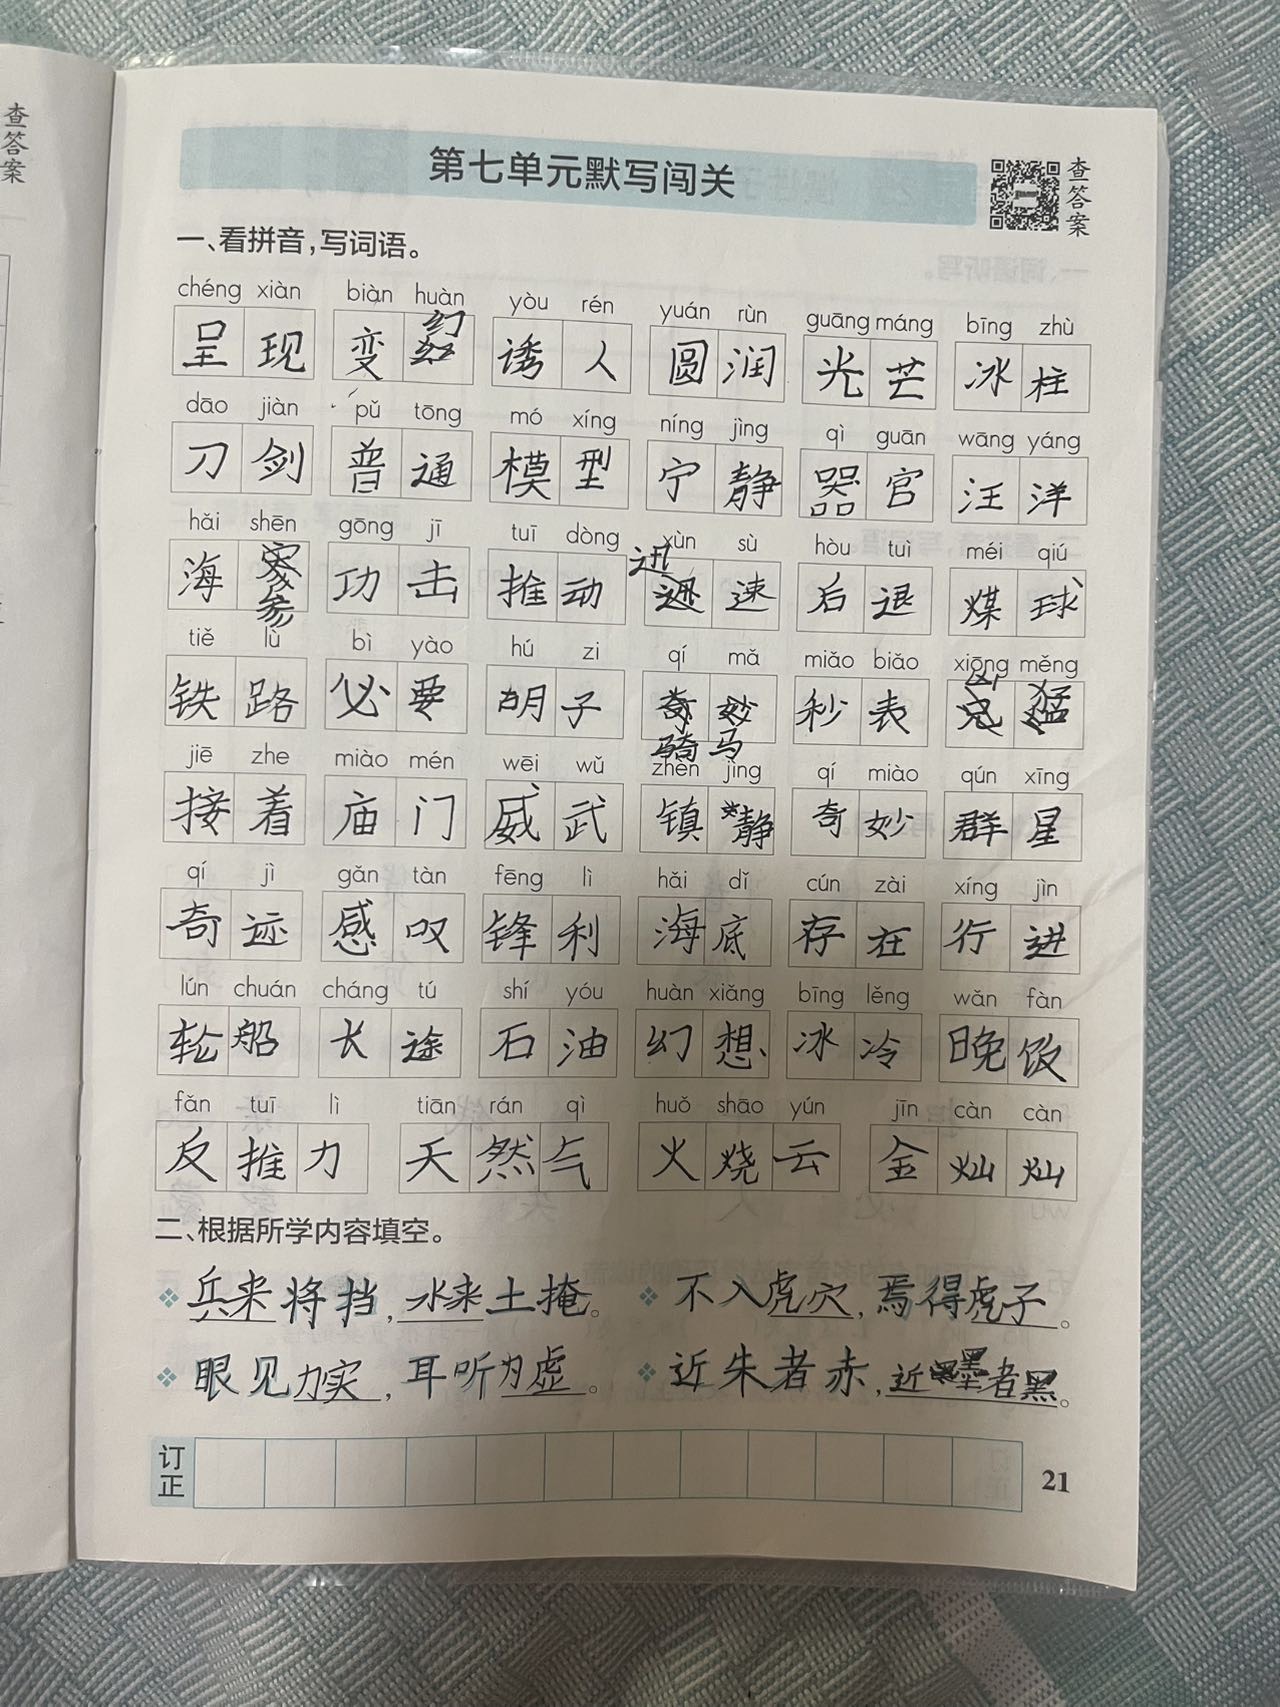 查答案
第七单元默写闯关
查答案
一、看拼音,写词语。
chéng xiàn biàn huàn yòu rén yuán rùn guāng máng bīng zhù
呈现 变幻 诱人 圆润 光芒 冰柱
dāo jiàn pǔ tōng mó xíng níng jìng qì guān wāng yáng
刀剑 普通 模型 宁静 器官 汪洋
hǎi shēn gōng jī tuī dòng xùn sù hòu tuì méi qiú
海参 功击 推动 迅速 后退 煤球
tiě lù bì yào hú zi qí mǎ miǎo biǎo xiōng měng
铁路 必要 胡子 奇妙 秒表 凶猛
骑马
jiē zhe miào mén wēi wǔ zhèn jìng qí miào qún xīng
接着 庙门 威武 镇静 奇妙 群星
qí jì gǎn tàn fēng lì hǎi dǐ cún zài xíng jìn
奇迹 感叹 锋利 海底 存在 行进
lún chuán cháng tú shí yóu huàn xiǎng bīng lěng wǎn fàn
轮船 长途 石油 幻想 冰冷 晚饭
fǎn tuī lì tiān rán qì huǒ shāo yún jīn càn càn
反推力 天然气 火烧云 金灿灿
二、根据所学内容填空。
兵来将挡,水来土掩。 不入虎穴,焉得虎子。
眼见为实,耳听为虚。 近朱者赤,近墨者黑。
订正
21